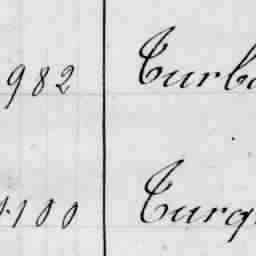 982 Turb
100 Turq